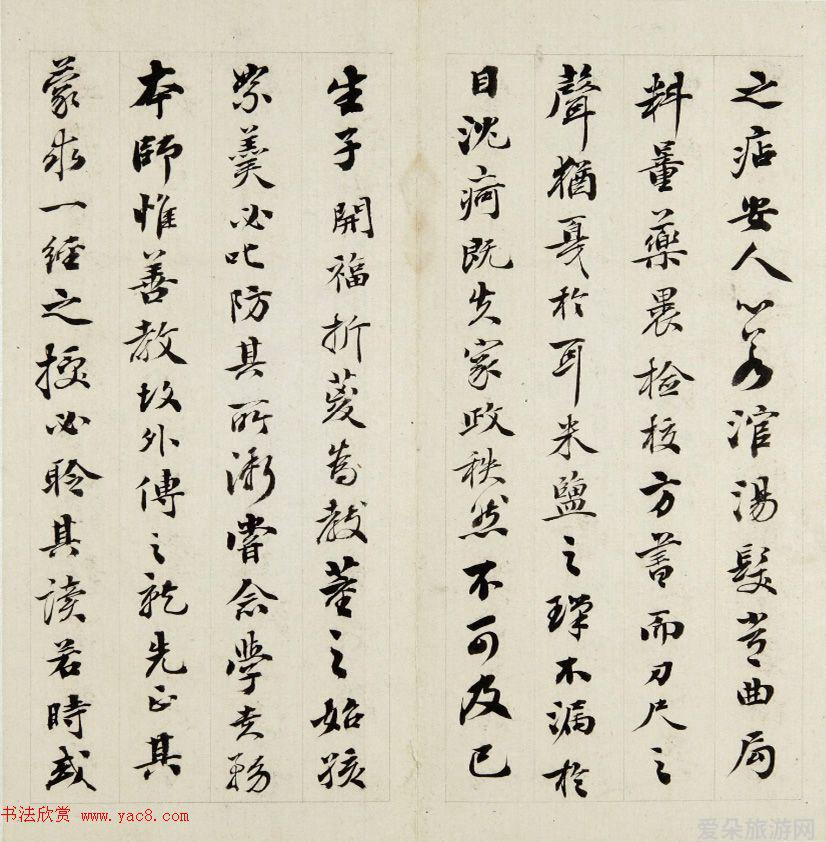 之痁安人以若涫湯髮嘗曲局
料量藥裹檢校方蓍而刀尺之
聲猶戛於耳米鹽之瑣不漏於
目沈痾既失家政秩然不可及已
生子開福折葼為教蓋之始孩
絮羹必叱防其所漸嘗念學貴務
本師惟善教故外傅之就先正其
蒙求一經之授必聆其讀若時或
书法欣赏 www.yac8.com
爱朵旅游网